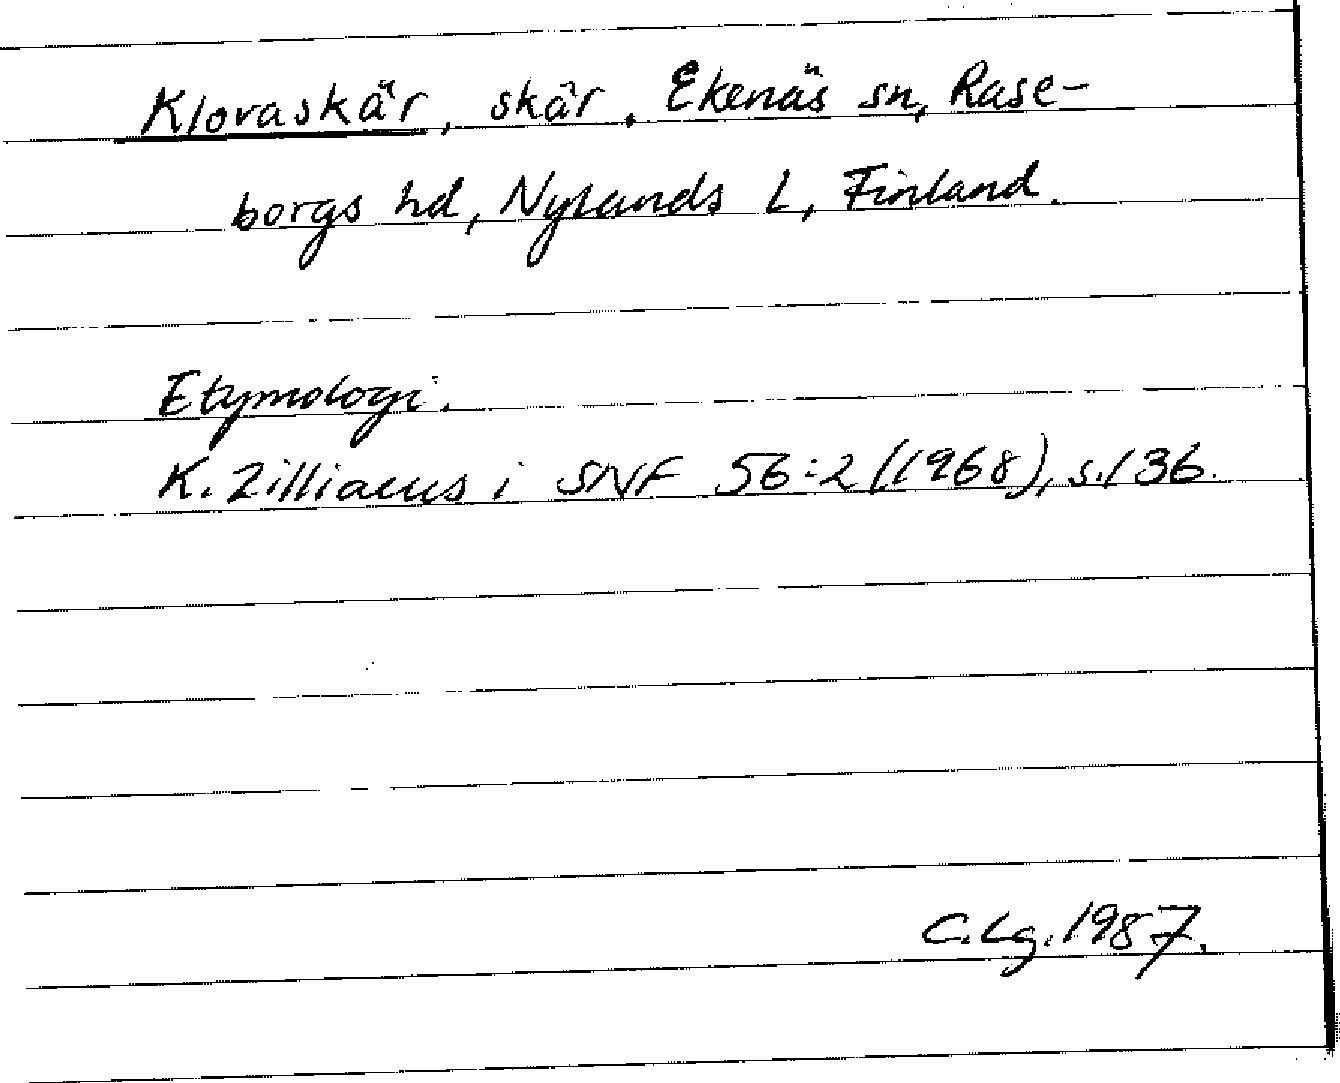 Klovaskär, skär. Ekenäs sn, Rase-
borgs hd, Nylands L, Finland.
Etymologi.
K. Zilliacus i SNF 56:2 (1968), s. 136.
C. Lg. 1987.